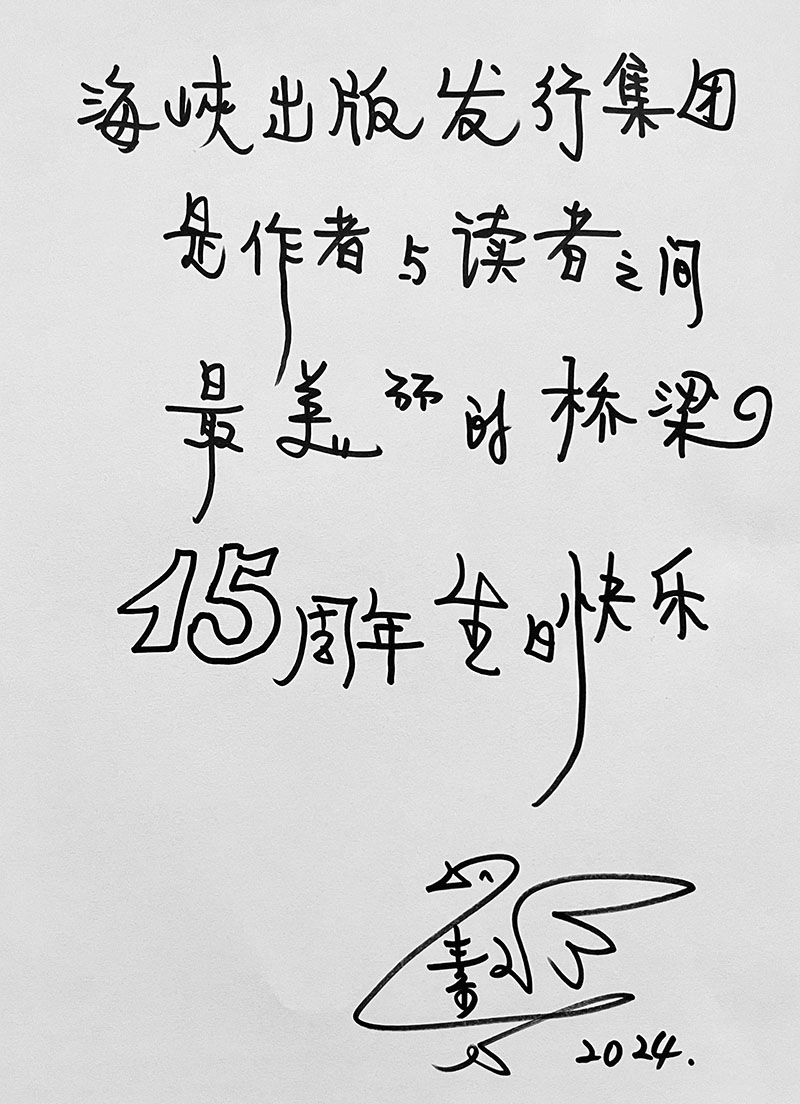 海峡出版发行集团
是作者与读者之间
最美丽的桥梁
15周年生日快乐
素
2024.